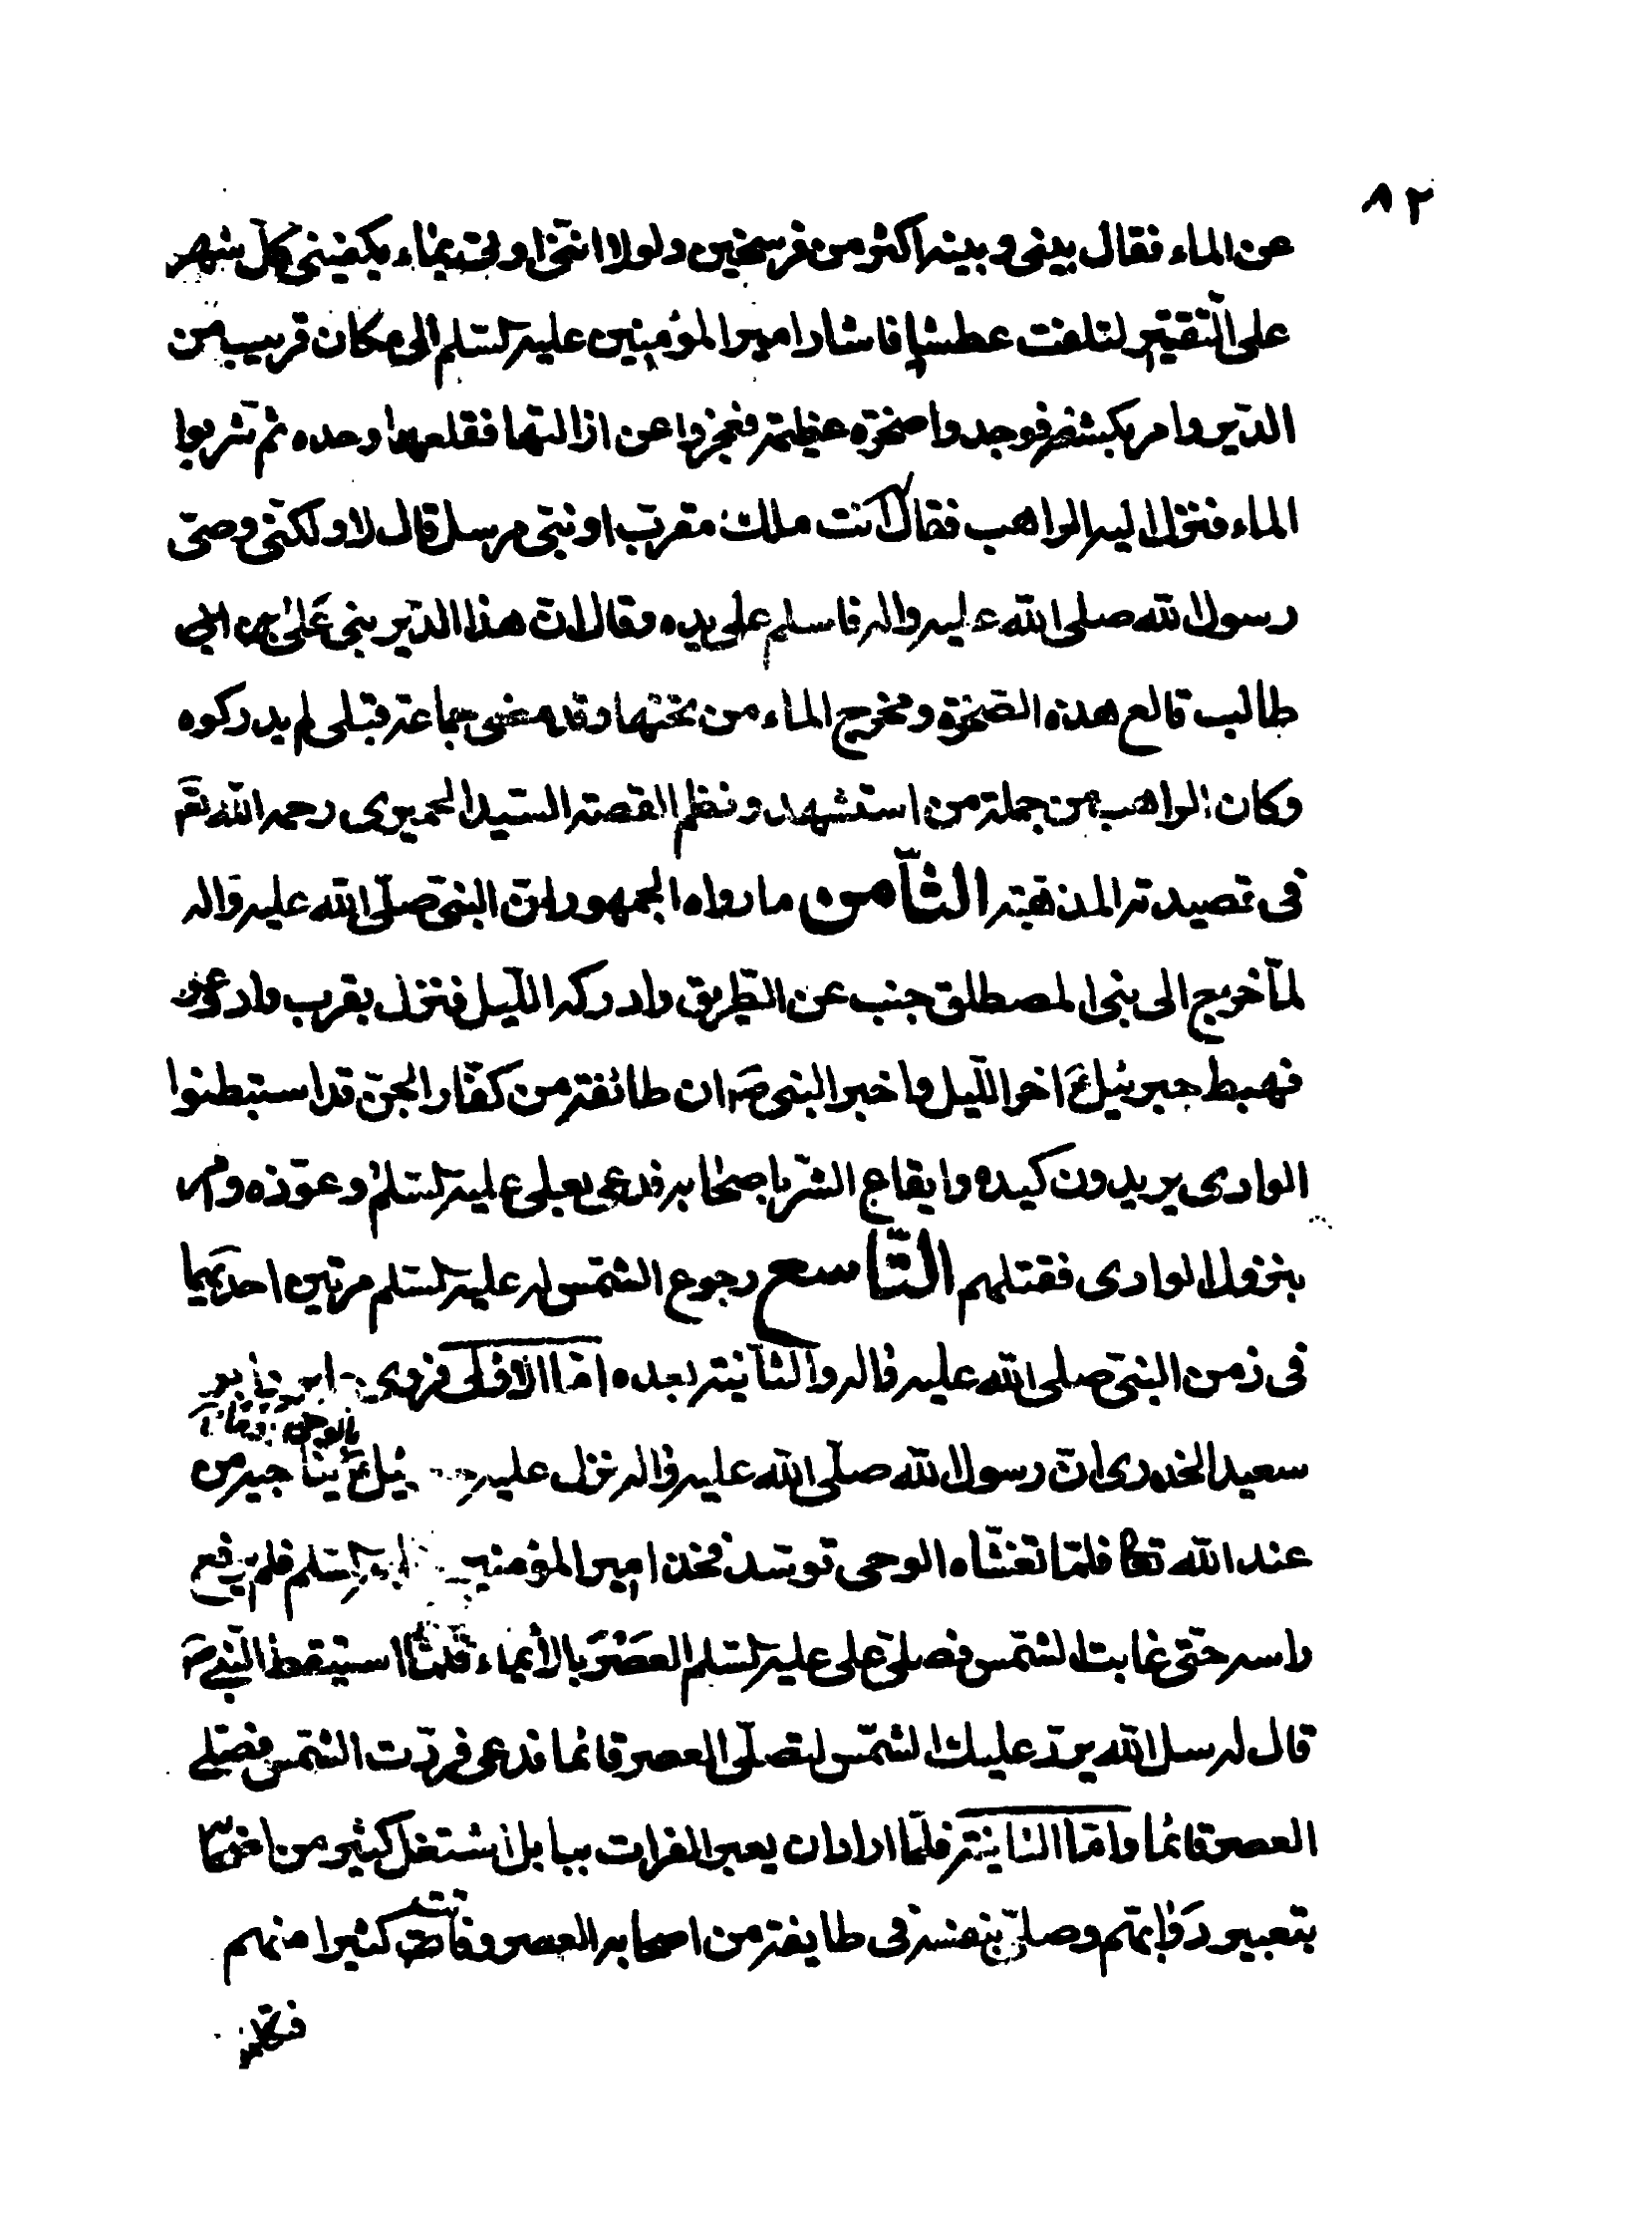 ٨٢
عن الماء فقال بيني وبينه اكثر من فرسخين ولولا انني اوتى بماء يكفيني كل شهر
على التقتير لتلفت عطشا فاشار امير المؤمنين عليه السلم الى مكان قريب من
الدير وامر بكشفه فوجدوا صخرة عظيمة فعجزوا عن ازالتها فقلعها وحده ثم شربوا
الماء فنزل اليه الراهب فقال انت ملك مقرب او نبي مرسل قال لا ولكني وصي
رسول الله صلى الله عليه واله فاسلم على يده وقال ان هذا الدير بني على بن ابي
طالب قالع هذه الصخرة ومخرج الماء من تحتها وقد مضى جماعة قبلي لم يدركوه
وكان الراهب من جملة من استشهد ونظم القصة السيد الحميري رحمه الله تع
في قصيدته المذهبة الثامن ما رواه الجمهور ان النبي صلى الله عليه واله
لما خرج الى بني المصطلق جنب عن الطريق وادركه الليل فنزل بقرب واد وعر
فهبط جبرئيل ع اخر الليل واخبر النبي ص ان طائفة من كفار الجن قد استبطنوا
الوادى يريدون كيده وايقاع الشر باصحابه فدعى بعلي عليه السلم وعوذه وامره
بنزول الوادى فقتلهم التاسع رجوع الشمس له عليه السلم مرتين احديهما
في زمن النبي صلى الله عليه واله والثانية بعده اما الاولى فروى جابر وابو
سعيد الخدرى ان رسول الله صلى الله عليه واله نزل عليه جبرئيل ع يناجيه من
عند الله تعا فلما تغشاه الوحى توسد فخذ امير المؤمنين عليه السلم فلم يرفع
راسه حتى غابت الشمس فصلى على عليه السلم العصر بالأيماء فلما استيقظ النبي ص
قال له سل الله يرد عليك الشمس لتصلى العصر قائما فدعى فردت الشمس فصلى
العصر قائما واما الثانية فلما اراد ان يعبر الفرات ببابل اشتغل كثير من اصحابه
بتعبير دوابهم وصلى بنفسه في طايفة من اصحابه العصر وفات كثيرا منهم
فتكلموا